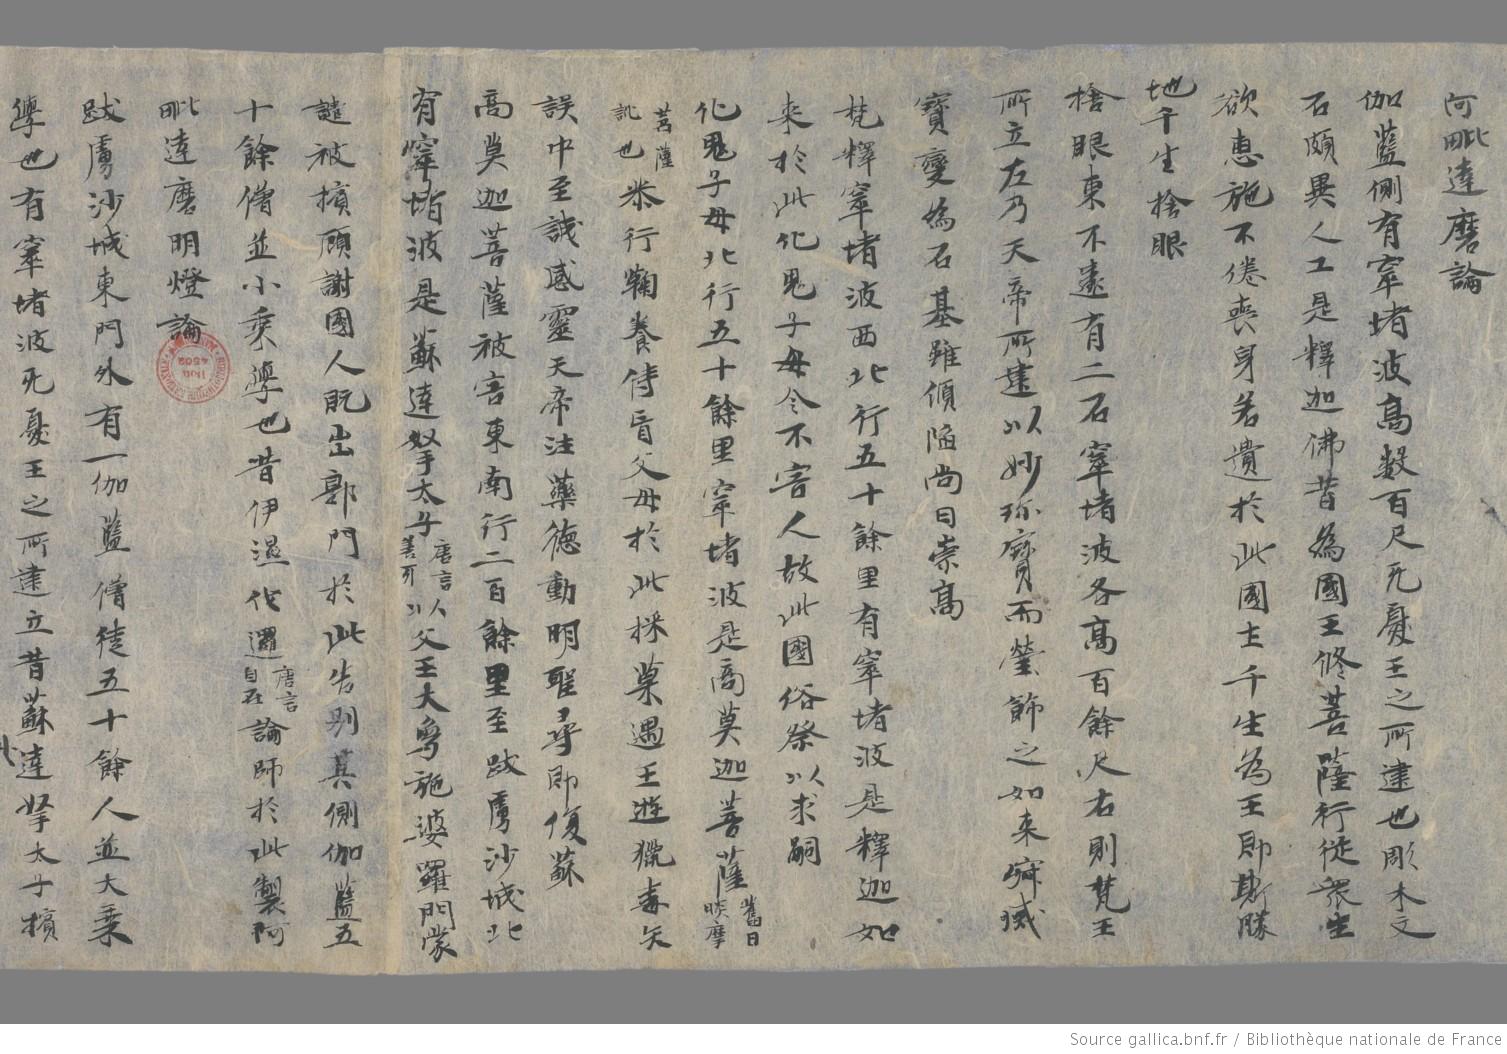 阿毗達磨論
伽藍側有窣堵波高數百尺无憂王之所建也彫木文
石頗異人工是釋迦佛昔為國王修菩薩行從衆生
欲惠施不倦喪身若遺於此國土千生為王即斯勝
地千生捨眼
捨眼東不遠有二石窣堵波各高百餘尺右則梵王
所立左乃天帝所建以妙珎寶而瑩飾之如来寂滅
寶變為石基雖傾陷尚曰崇高
梵釋窣堵波西北行五十餘里有窣堵波是釋迦如
来於此化鬼子母令不害人故此國俗祭以求嗣
化鬼子母北行五十餘里窣堵波是商莫迦菩薩舊曰睒摩
菩薩訛也恭行鞠養侍盲父母於此採菓遇王遊獵毒矢
誤中至誠感靈天帝注藥德動明聖尋即復蘇
商莫迦菩薩被害東南行二百餘里至跋虜沙城北
有窣堵波是蘇達拏太子唐言善牙以父王大象施婆羅門蒙
譴被擯顧謝國人既出郭門於此告別其側伽藍五
十餘僧並小乘學也昔伊濕伐邏唐言自在論師於此製阿
毗達磨明燈論
跋虜沙城東門外有一伽藍僧徒五十餘人並大乗
學也有窣堵波无憂王之所建立昔蘇達拏太子擯